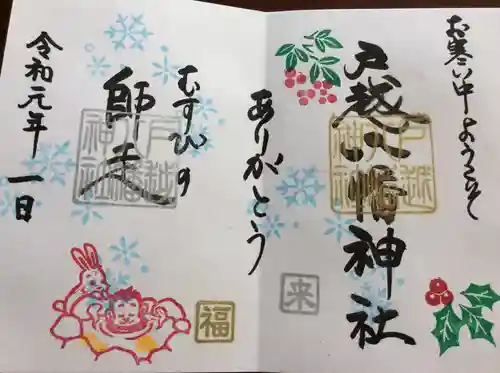 お寒い中ようこそ
戸越八幡神社
戸越八幡神社
来
ありがとう
むすびの
師走
戸越八幡神社
福
令和元年 一日